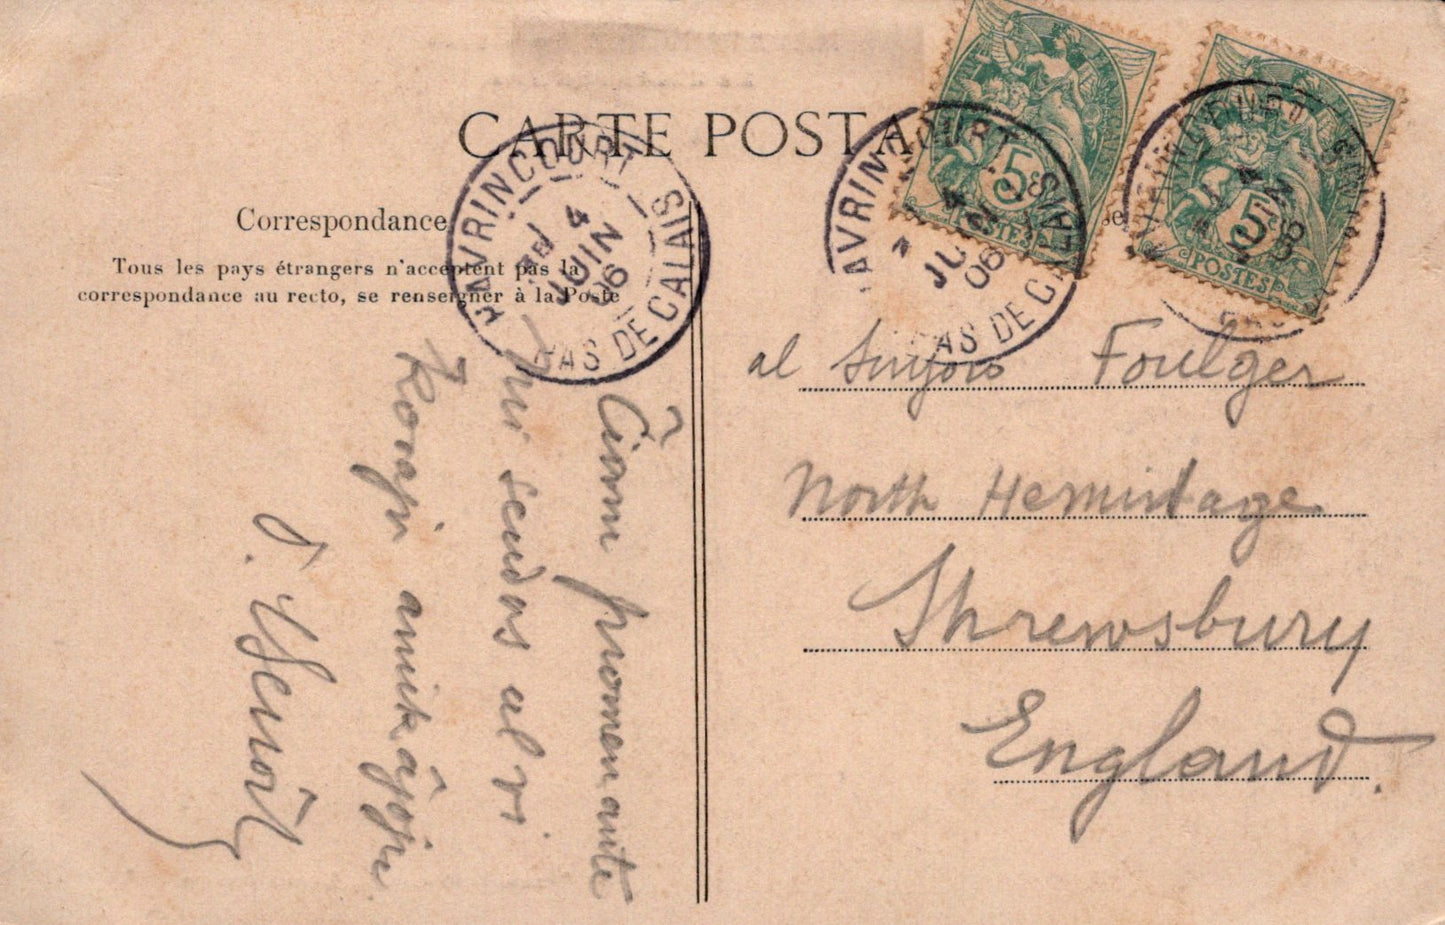 CARTE POSTA
Correspondance
Tous les pays étrangers n'acceptent pas la
correspondance au recto, se renseigner à la Poste
HAVRINCOURT
4
JUIN
06
PAS DE CALAIS
AVRINCOURT
4
JU
06
PAS DE CALAIS
5
POSTES
5
POSTES
Ĉiam promenante
mi sendas al vi
Korajn amikaĵojn
al Sinjoro Foulger
North Hermitage
Shrewsbury
England.